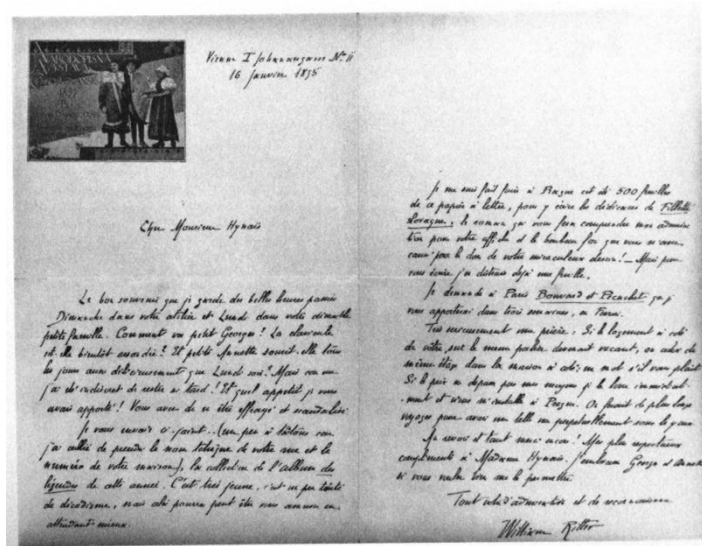 NÁRODOPISNÁ
VÝSTAVA
1895
Vienne I Johannesgasse No 11
16 Janvier 1895
Cher Monsieur Hynais
Le bon souvenir que je garde des belles heures passées
Dimanche dans votre atelier et Lundi dans votre aimable
petite famille. Comment va petit Georges? La clavicule
est-elle bientôt ressoudée? Et petite Annette sourit-elle tous
les jours aussi que Lundi soir? Mais
j'ai été indiscret de rester si tard! Et quel appétit je vous
avais apporté! Vous avez dû en être effrayé et scandalisé.
Je vous envoie ci-joint.. (un peu à tâtons car
j'ai oublié de prendre le nom tchèque de votre rue et le
numéro de votre maison), la collection de l'album des
légendes de cette année. C'est très jeune, c'est un peu teinté
de décadisme, mais cela pourra peut être vous amuser en
attendant mieux.
Je me suis fait faire à Prague cet été 500 feuilles
de ce papier à lettre, pour y écrire les dédicaces de Fillette
Slovaque, le roman qui vous fera comprendre mon admira-
tion pour votre affiche et le bonheur fou que vous m'avez
causé par le don de votre miraculeux dessin! — Mais pour
vous écrire j'en distrais déjà une feuille.
Je demande à Paris Bouvard et Pécuchet qui
vous apportera dans trois semaines, en
Très sérieusement une prière. Si le logement à côté
du vôtre sur le même palier devenait vacant, ou celui du
même étage dans la maison à côté: un mot s'il vous plaît.
Si le prix ne dépasse pas mes moyens je le loue immédiate-
ment et viens m'installer à Prague. On ferait de plus longs
voyages pour avoir un telle vue perpétuellement sous les yeux.
Au revoir et tout merci encore. Mes plus respectueux
compliments à Madame Hynais. J'embrasse Georges et Annette
si vous voulez bien me le permettre.
Tout vôtre d'admiration et de reconnaissance
William Ritter